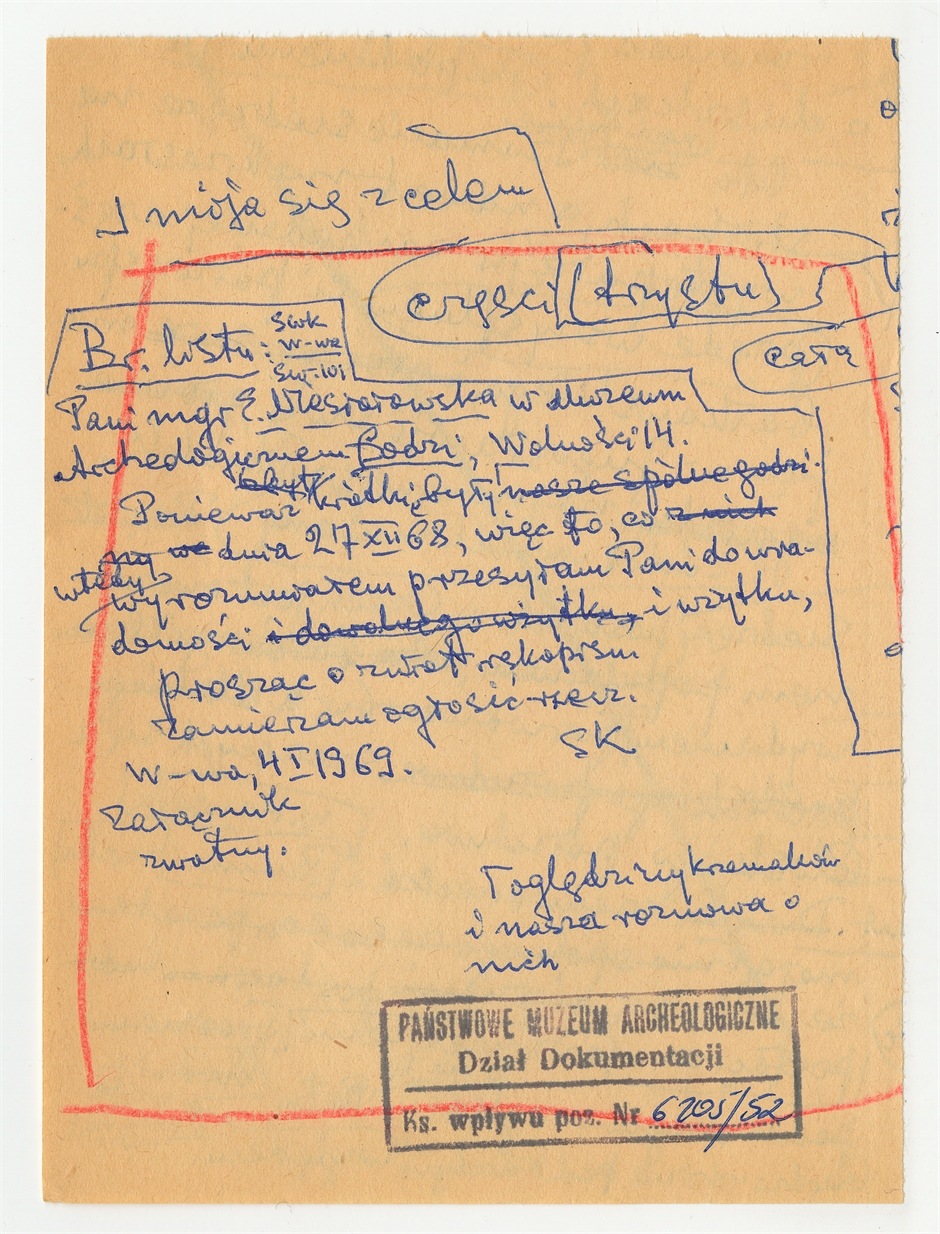 I mója się z celem
części (trzystu)
cała
Br. listu: SWK
W-wa
Pani mgr E. w Muzeum
Archeologicznem Łodzi, Wolności 14.
Ponieważ krótkie były nasze spólne godzi-
ny we dnia 27 XII 68, więc to, co z nich
wtedy
wyrozumiałem przesyłam Pani do wia-
domości i dowolnego użytku, i użytku,
prosząc o zwrot rękopism
Zamierzam ogłosić rzecz.
SK
W-wa, 4 I 1969.
Załącznik
zwrotny.
Toględziny krzemaków
i nasza rozmowa o
nich
PAŃSTWOWE MUZEUM ARCHEOLOGICZNE
Dział Dokumentacji
Ks. wpływu poz. Nr 6205/52